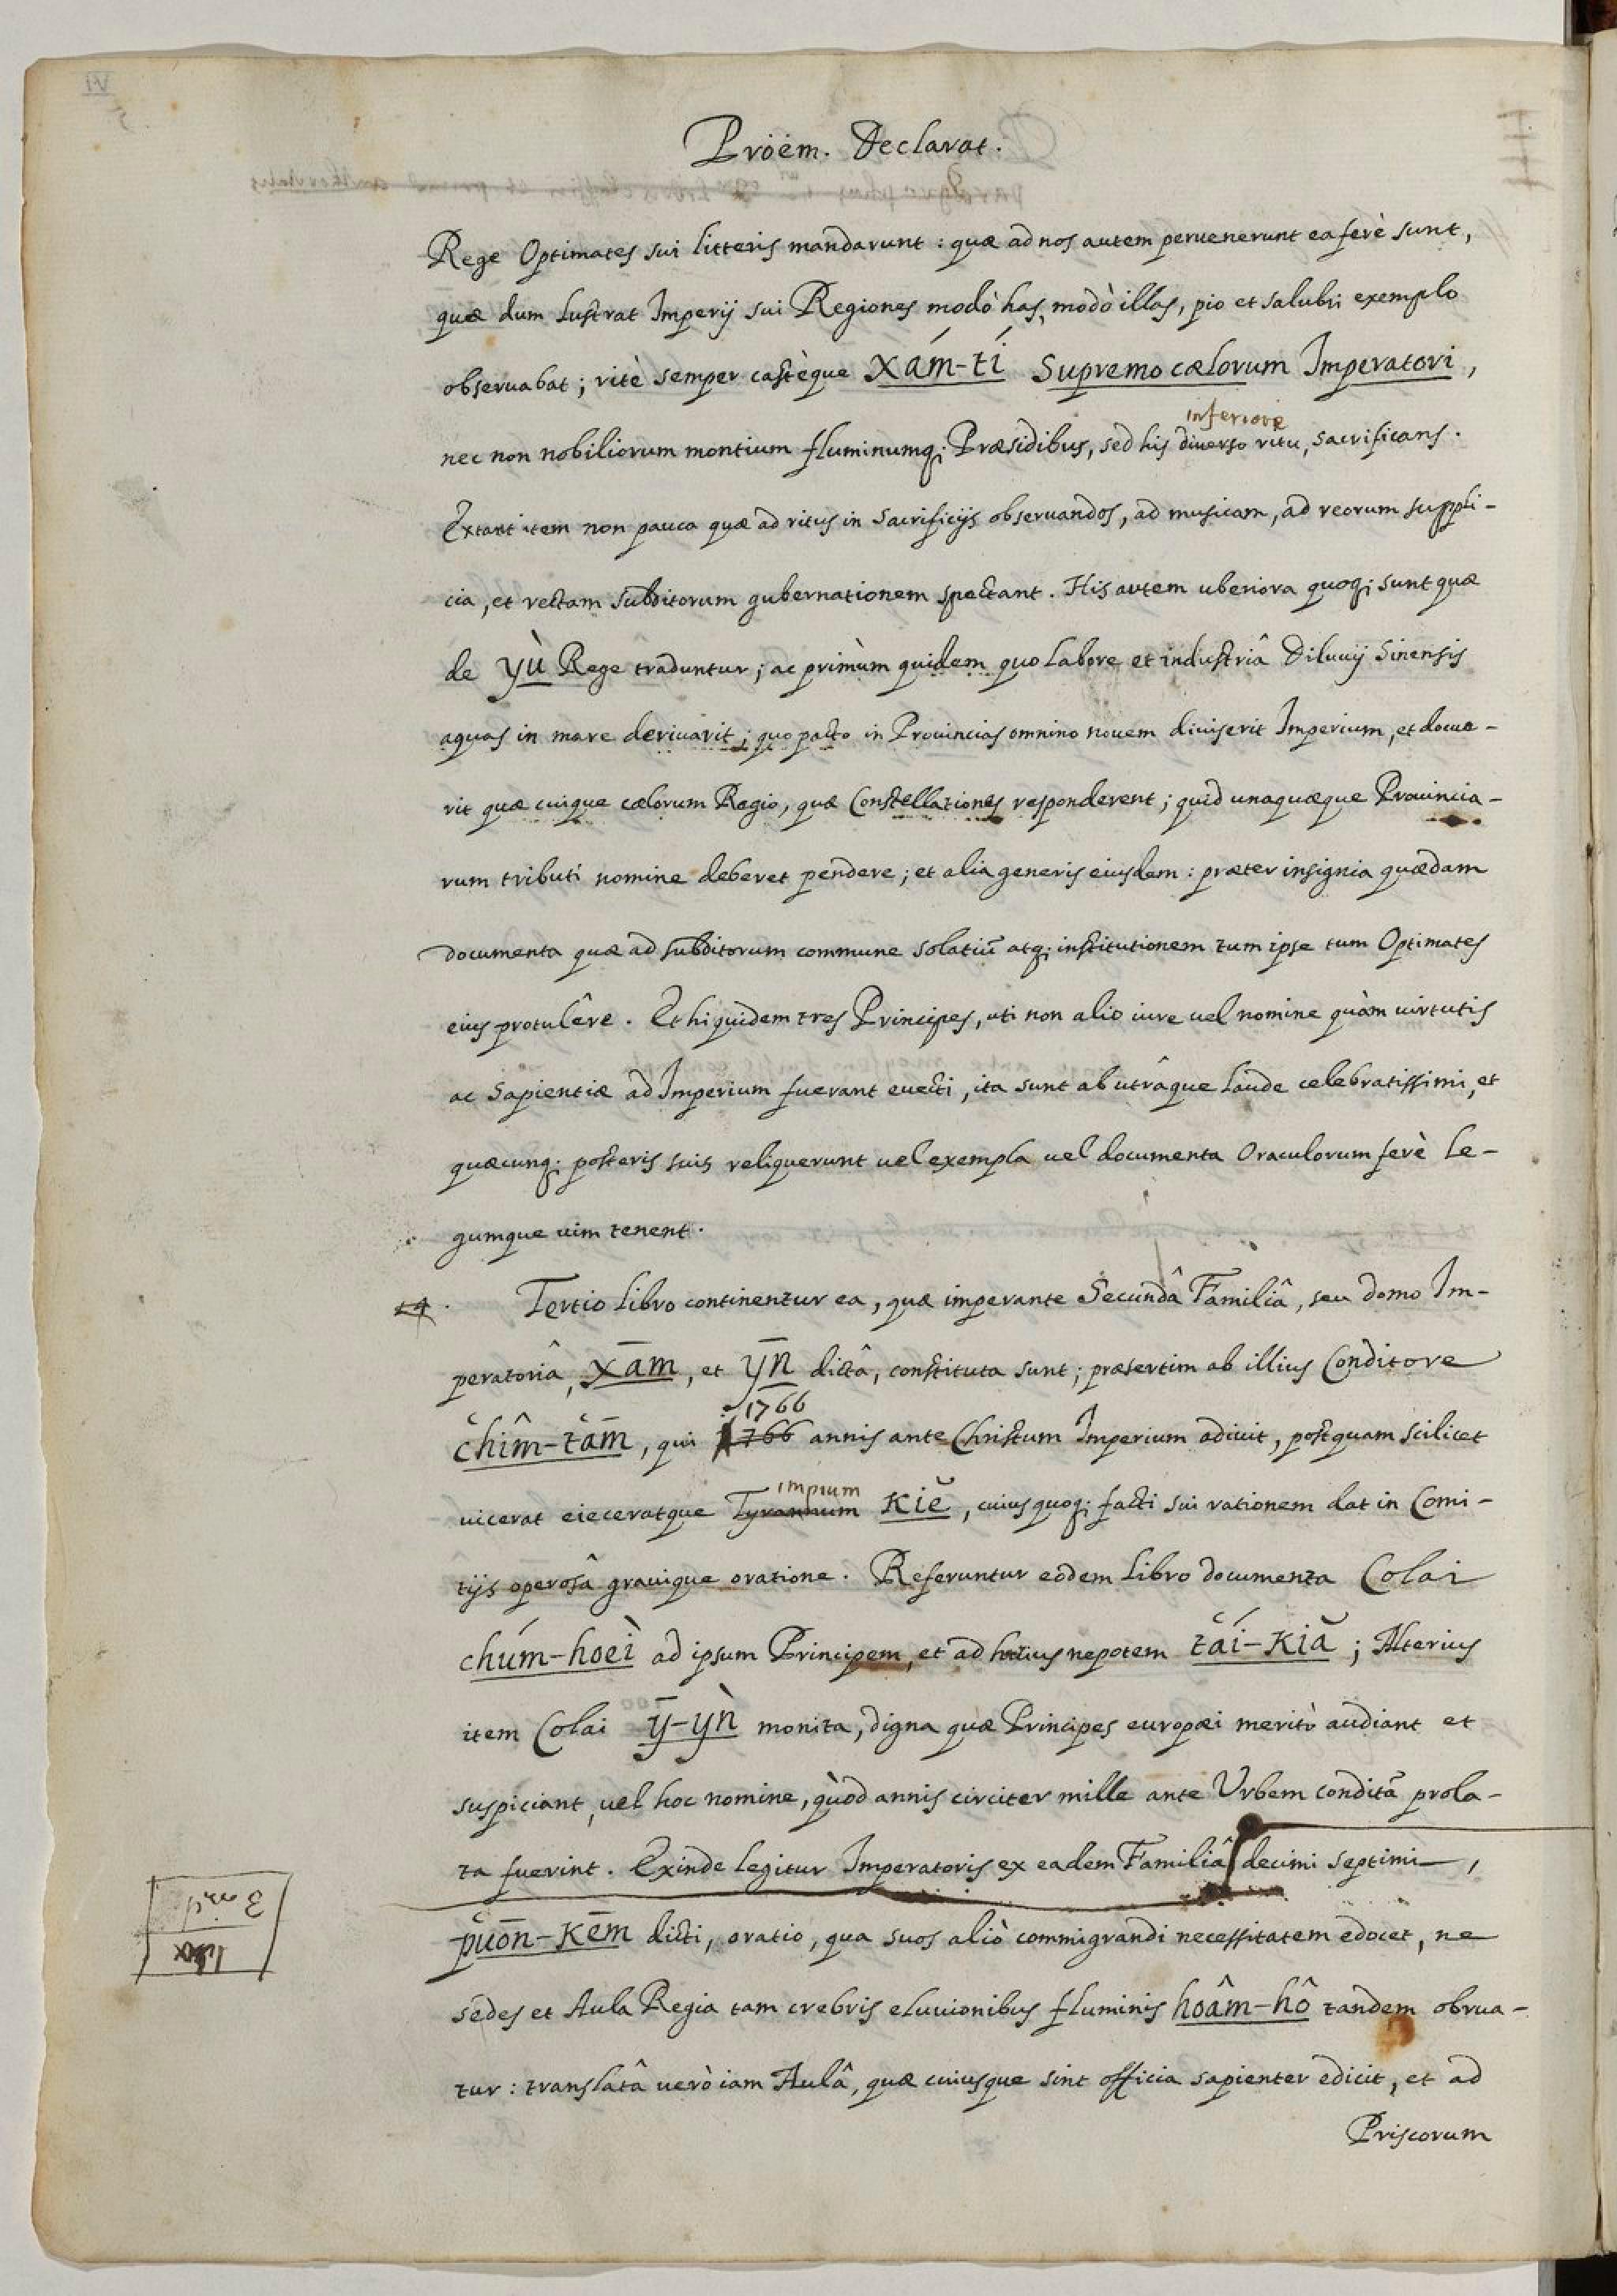 Pröém. Declarat.
Rege Optimates sui litteris mandarunt : quæ ad nos autem peruenerunt ea ferè sunt,
quæ dum lustrat Imperij sui Regiones modò has, modò illas, pio et salubri exemplo
obseruabat ; ritè semper castèque xám-tí Supremo cælorum Imperatori,
inferiore
nec non nobiliorum montium fluminumq; Præsidibus, sed his diuerso ritu, sacrificans.
Extant item non pauca quæ ad ritus in Sacrificijs obseruandos, ad musicam, ad reorum suppli-
cia, et rectam subditorum gubernationem spectant. His autem uberiora quoq; sunt quæ
de yù Rege traduntur ; ac primùm quidem quo labore et industriâ Diluuij Sinensis
aquas in mare deriuarit ; quo pacto in Prouincias omnino nouem diuiserit Imperium, et docue-
rit quæ cuique cælorum Regio, quæ Constellationes responderent ; quid unaquæque Prouincia-
rum tributi nomine deberet pendere ; et alia generis eiusdem : præter insignia quædam
documenta quæ ad subditorum commune solatiũ atq; institutionem tum ipse tum Optimates
eius protulêre. Et hi quidem tres Principes, uti non alio iure uel nomine quàm uirtutis
ac Sapientiæ ad Imperium fuerant euecti, ita sunt ab utrâque laude celebratissimi, et
quæcunq; posteris suis reliquerunt uel exempla uel documenta Oraculorum ferè le-
gumque uim tenent.
14. Tertio libro continentur ea, quæ imperante Secundâ Familiâ, seu domo Im-
peratoriâ, xām, et ȳn dictâ, constituta sunt ; præsertim ab illius Conditore
1766
chîm-tām, qui 1766 annis ante Christum Imperium adiuit, postquam scilicet
impium
uicerat eieceratque Tyrannum Kiĕ, cuius quoq; facti sui rationem dat in Comi-
tijs operosâ grauique oratione. Referuntur eodem libro documenta Colai
chúm-hoeì ad ipsum Principem, et ad huius nepotem tái-Kiă ; Alterius
item Colai ȳ-ỳn monita, digna quæ Principes europæi meritò audiant et
suspiciant, uel hoc nomine, quòd annis circiter mille ante Urbem conditã prola-
ta fuerint. Exinde legitur Imperatoris ex eadem Familiâ decimi septimi,
puōn-Kēm dicti, oratio, qua suos aliò commigrandi necessitatem edocet, ne
sedes et Aula Regia tam crebris eluuionibus fluminis hoâm-hô tandem obrua-
tur : translatâ uerò iam Aulâ, quæ cuiusque sint officia sapienter edicit, et ad
Priscorum